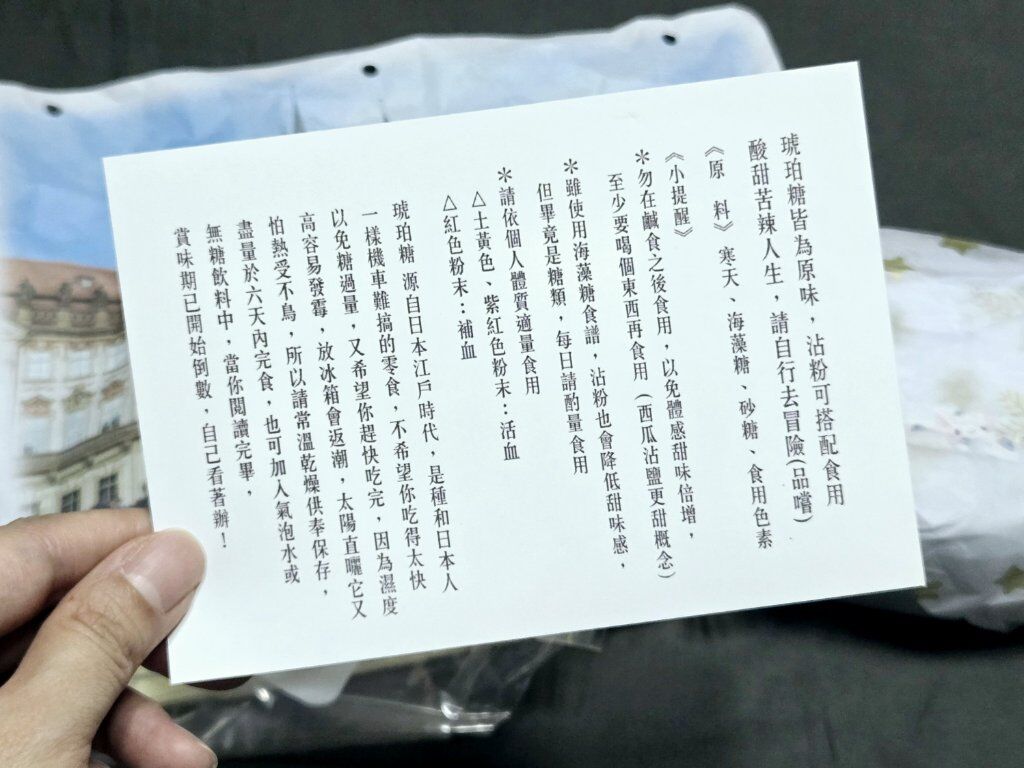 琥珀糖皆為原味，沾粉可搭配食用
酸甜苦辣人生，請自行去冒險(品嚐)
《原　料》 寒天、海藻糖、砂糖、食用色素
《小提醒》
＊勿在鹹食之後食用，以免體感甜味倍增，
至少要喝個東西再食用（西瓜沾鹽更甜概念）
＊雖使用海藻糖食譜，沾粉也會降低甜味感，
但畢竟是糖類，每日請酌量食用
＊請依個人體質適量食用
△土黃色、紫紅色粉末：活血
△紅色粉末：補血
琥珀糖 源自日本江戶時代，是種和日本人
一樣機車難搞的零食，不希望你吃得太快
以免糖過量，又希望你趕快吃完，因為濕度
高容易發霉，放冰箱會返潮，太陽直曬它又
怕熱受不鳥，所以請常溫乾燥供奉保存，
盡量於六天內完食，也可加入氣泡水或
無糖飲料中，當你閱讀完畢，
賞味期已開始倒數，自己看著辦！